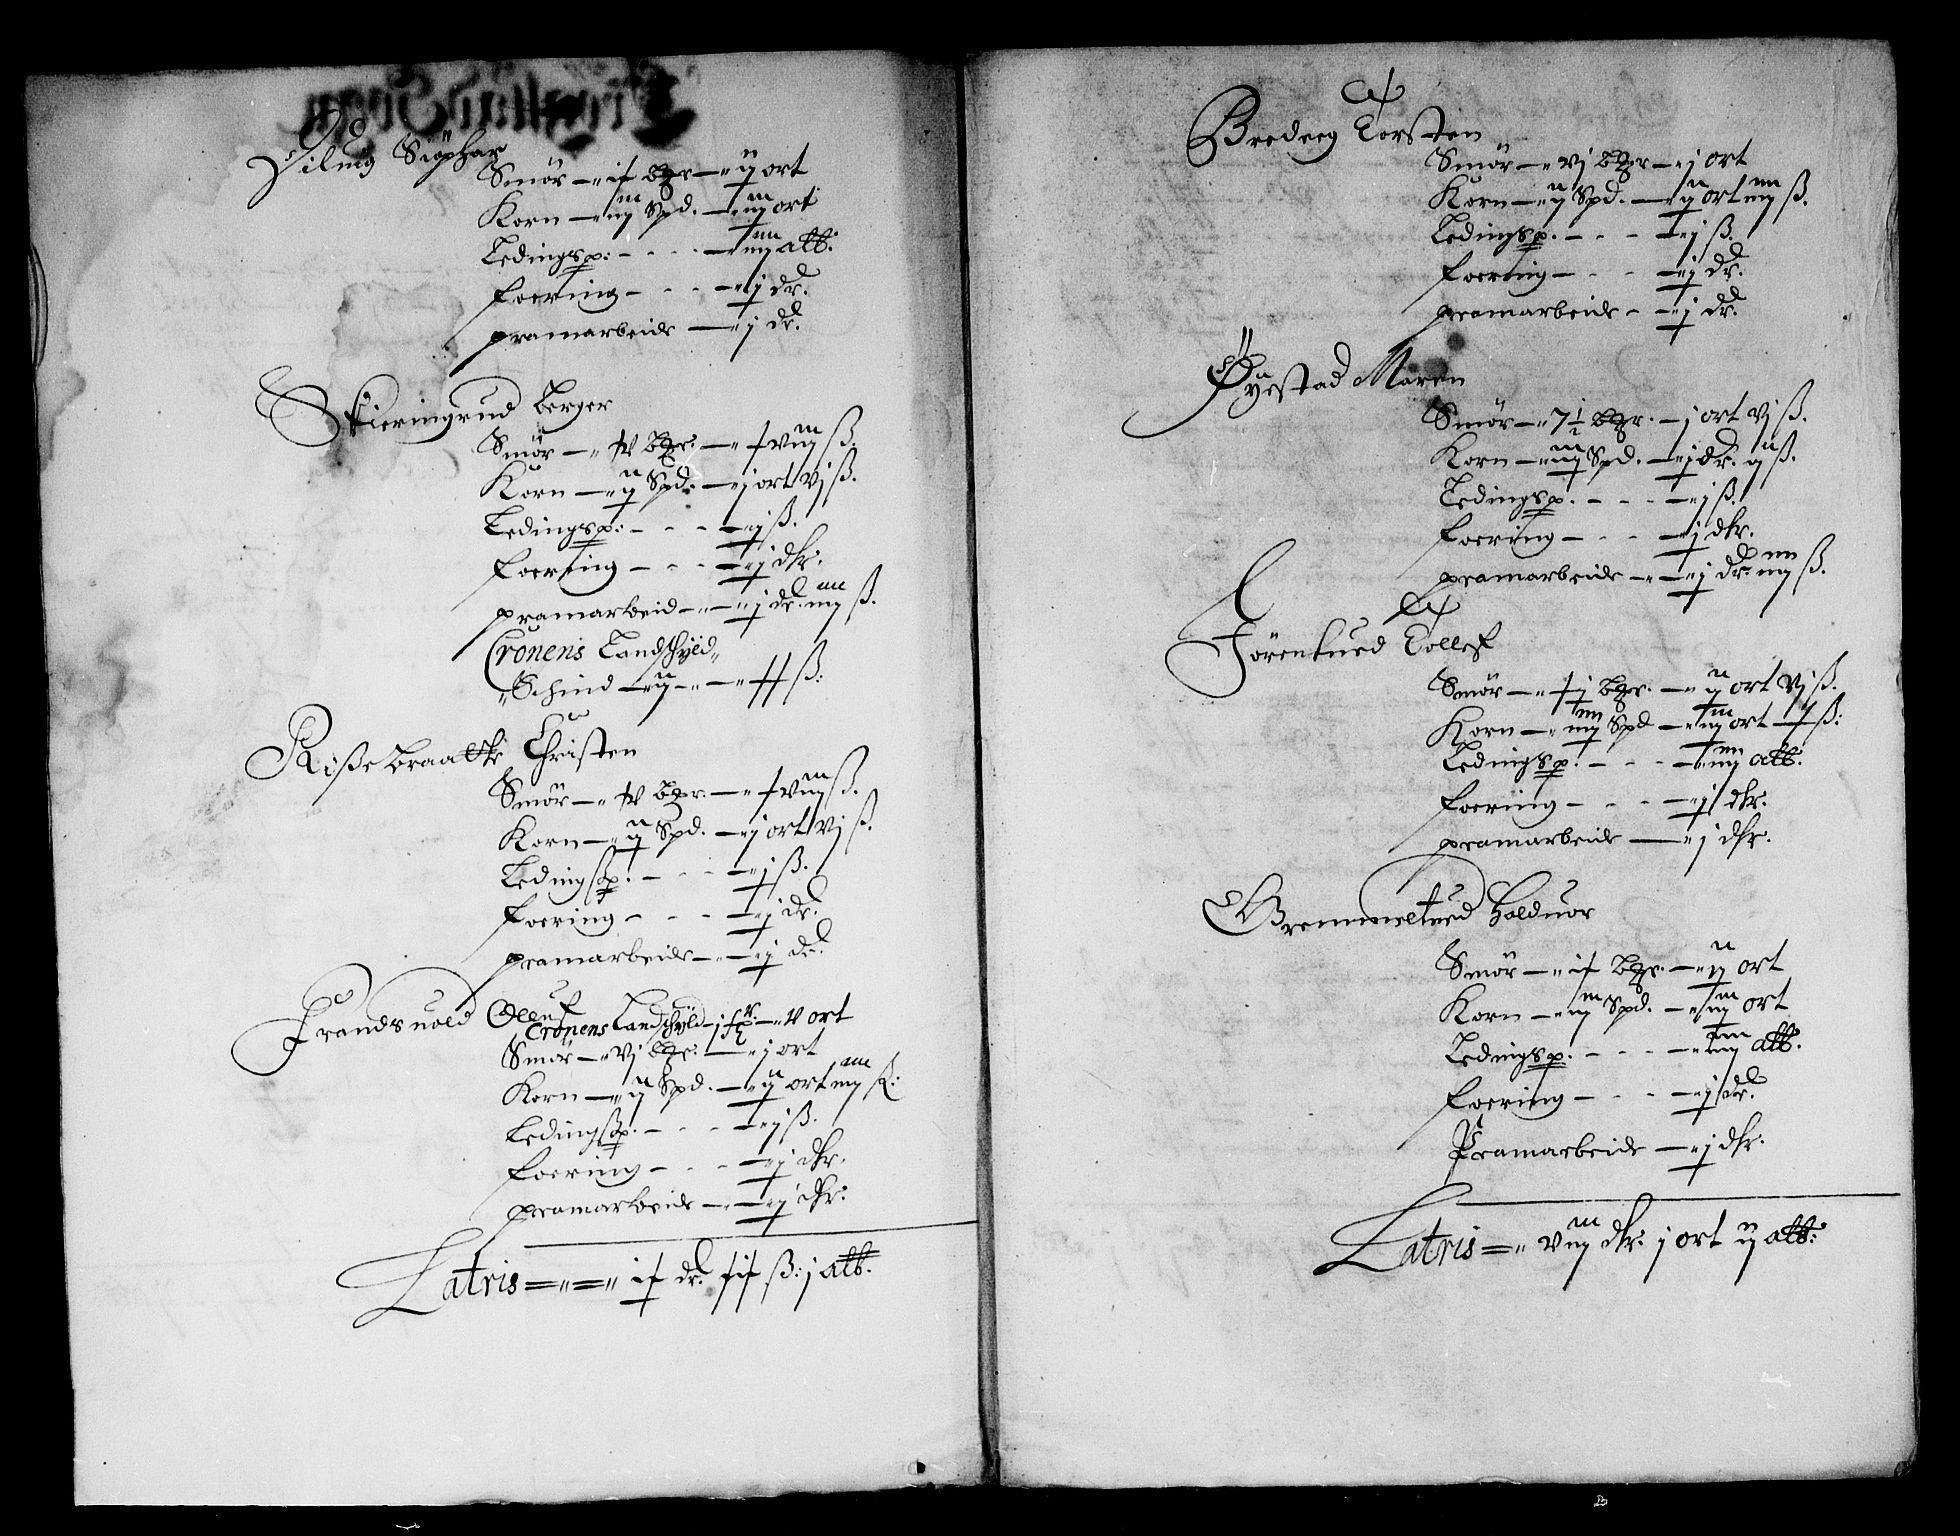 Siöphar
Smör — ix bgr — ij ort
Korn — iij Spd. — iij ort
Ledingsp: — — iiij alb:
foering — — j dr.
pramarbeide — j dr.
Skieringrud Berger
Smör — xv bgr. — xviij ß.
Korn — ij Spd. — j ort vj ß.
Ledingsp: — — j ß.
foering — — j dlr.
pramarbeid — j dr. iiij ß.
Cronens Landschyld
Schind — ij — xx ß:
Rißebraatte Christen
Smör — xv bgr. — xviij ß.
Korn — ij Spd. — j ort vj ß.
Ledingsp. — — j ß.
foering — — j dr.
pramarbeide — j dr.
Frandsuold Olluf
Cronens Landschyld — j — v ort
Smör — vj bgr. — j ort
Korn — ij Spd. — ij ort iiij ß:
Ledingsp. — — j ß.
foering — — j dlr.
pramarbeide — j dlr.
Latris = ix dr. xix ß: j alb.
Bredeeg Torsten
Smör — vj bgr — j ort
Korn — ij Spd. — ij ort iiij ß.
Ledingsp. — — j ß.
foering — — j dr.
pramarbeide — j dr.
Öyestad Maren
Smör — 7½ bgr. — j ort vj ß.
Korn — iij Spd. — j dr. ij ß.
Ledingsp. — — j ß.
foering — — j dlr.
pramarbeide — j dr. iiij ß.
Törentued Tollef
Smör — xj bgr. — ij ort vj ß.
Korn — iiij Spd — iij ort x ß:
Ledingsp. — — iiij alb.
foering — — j dlr.
pramarbeide — j dlr.
Gremmeltued Halduor
Smör — ix bgr. — ij ort
Korn — iij Spd. — iij ort
Ledingsp. — — iiij alb.
foering — — j dr.
Pramarbeide — j dlr.
Latris = viij dlr. j ort ij alb: